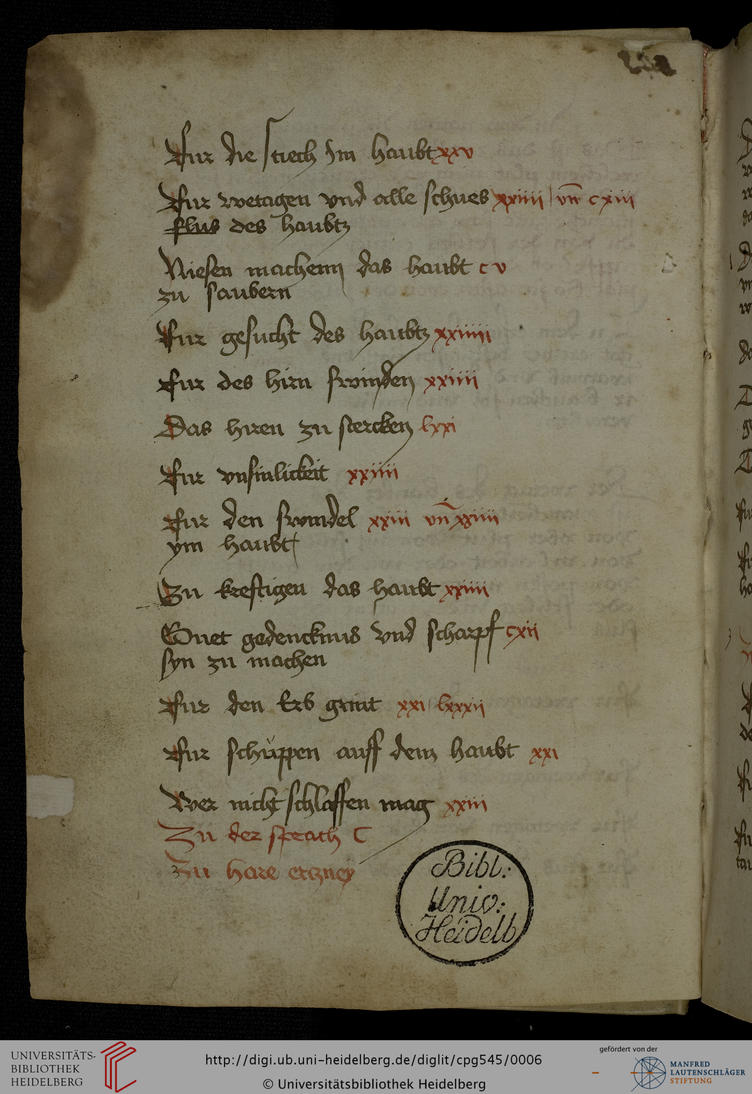 Fur die stech Im haubt xxv
Fur wetagen vnd alle schues xxiiii vn̄ cxiii
flus des haubtz
Niesen machenn das haubt cv
zu saubern
Fur gesucht des haubtz xxiiiii
Fur des hirn swinden xxiiii
Das hiren zu stercken lxxi
Fur vnsinlickeit xxiiii
Fur den swindel xxiii vn̄ xxiiii
ym haubt
Zu kreftigen das haubt xxiiii
Guet gedencknus vnd scharpf cxii
syn zu machen
Fur den Erb grint xxi lxxxii
Fur schüppen auff dem haubt xxi
Wer nicht schlaffen mag xxiii
Zu der sprach C
Zu hare erczney
Bibl:
Univ:
Heidelb
UNIVERSITÄTS-
BIBLIOTHEK
HEIDELBERG
http://digi.ub.uni-heidelberg.de/diglit/cpg545/0006
© Universitätsbibliothek Heidelberg
gefördert von der
MANFRED
LAUTENSCHLÄGER
STIFTUNG